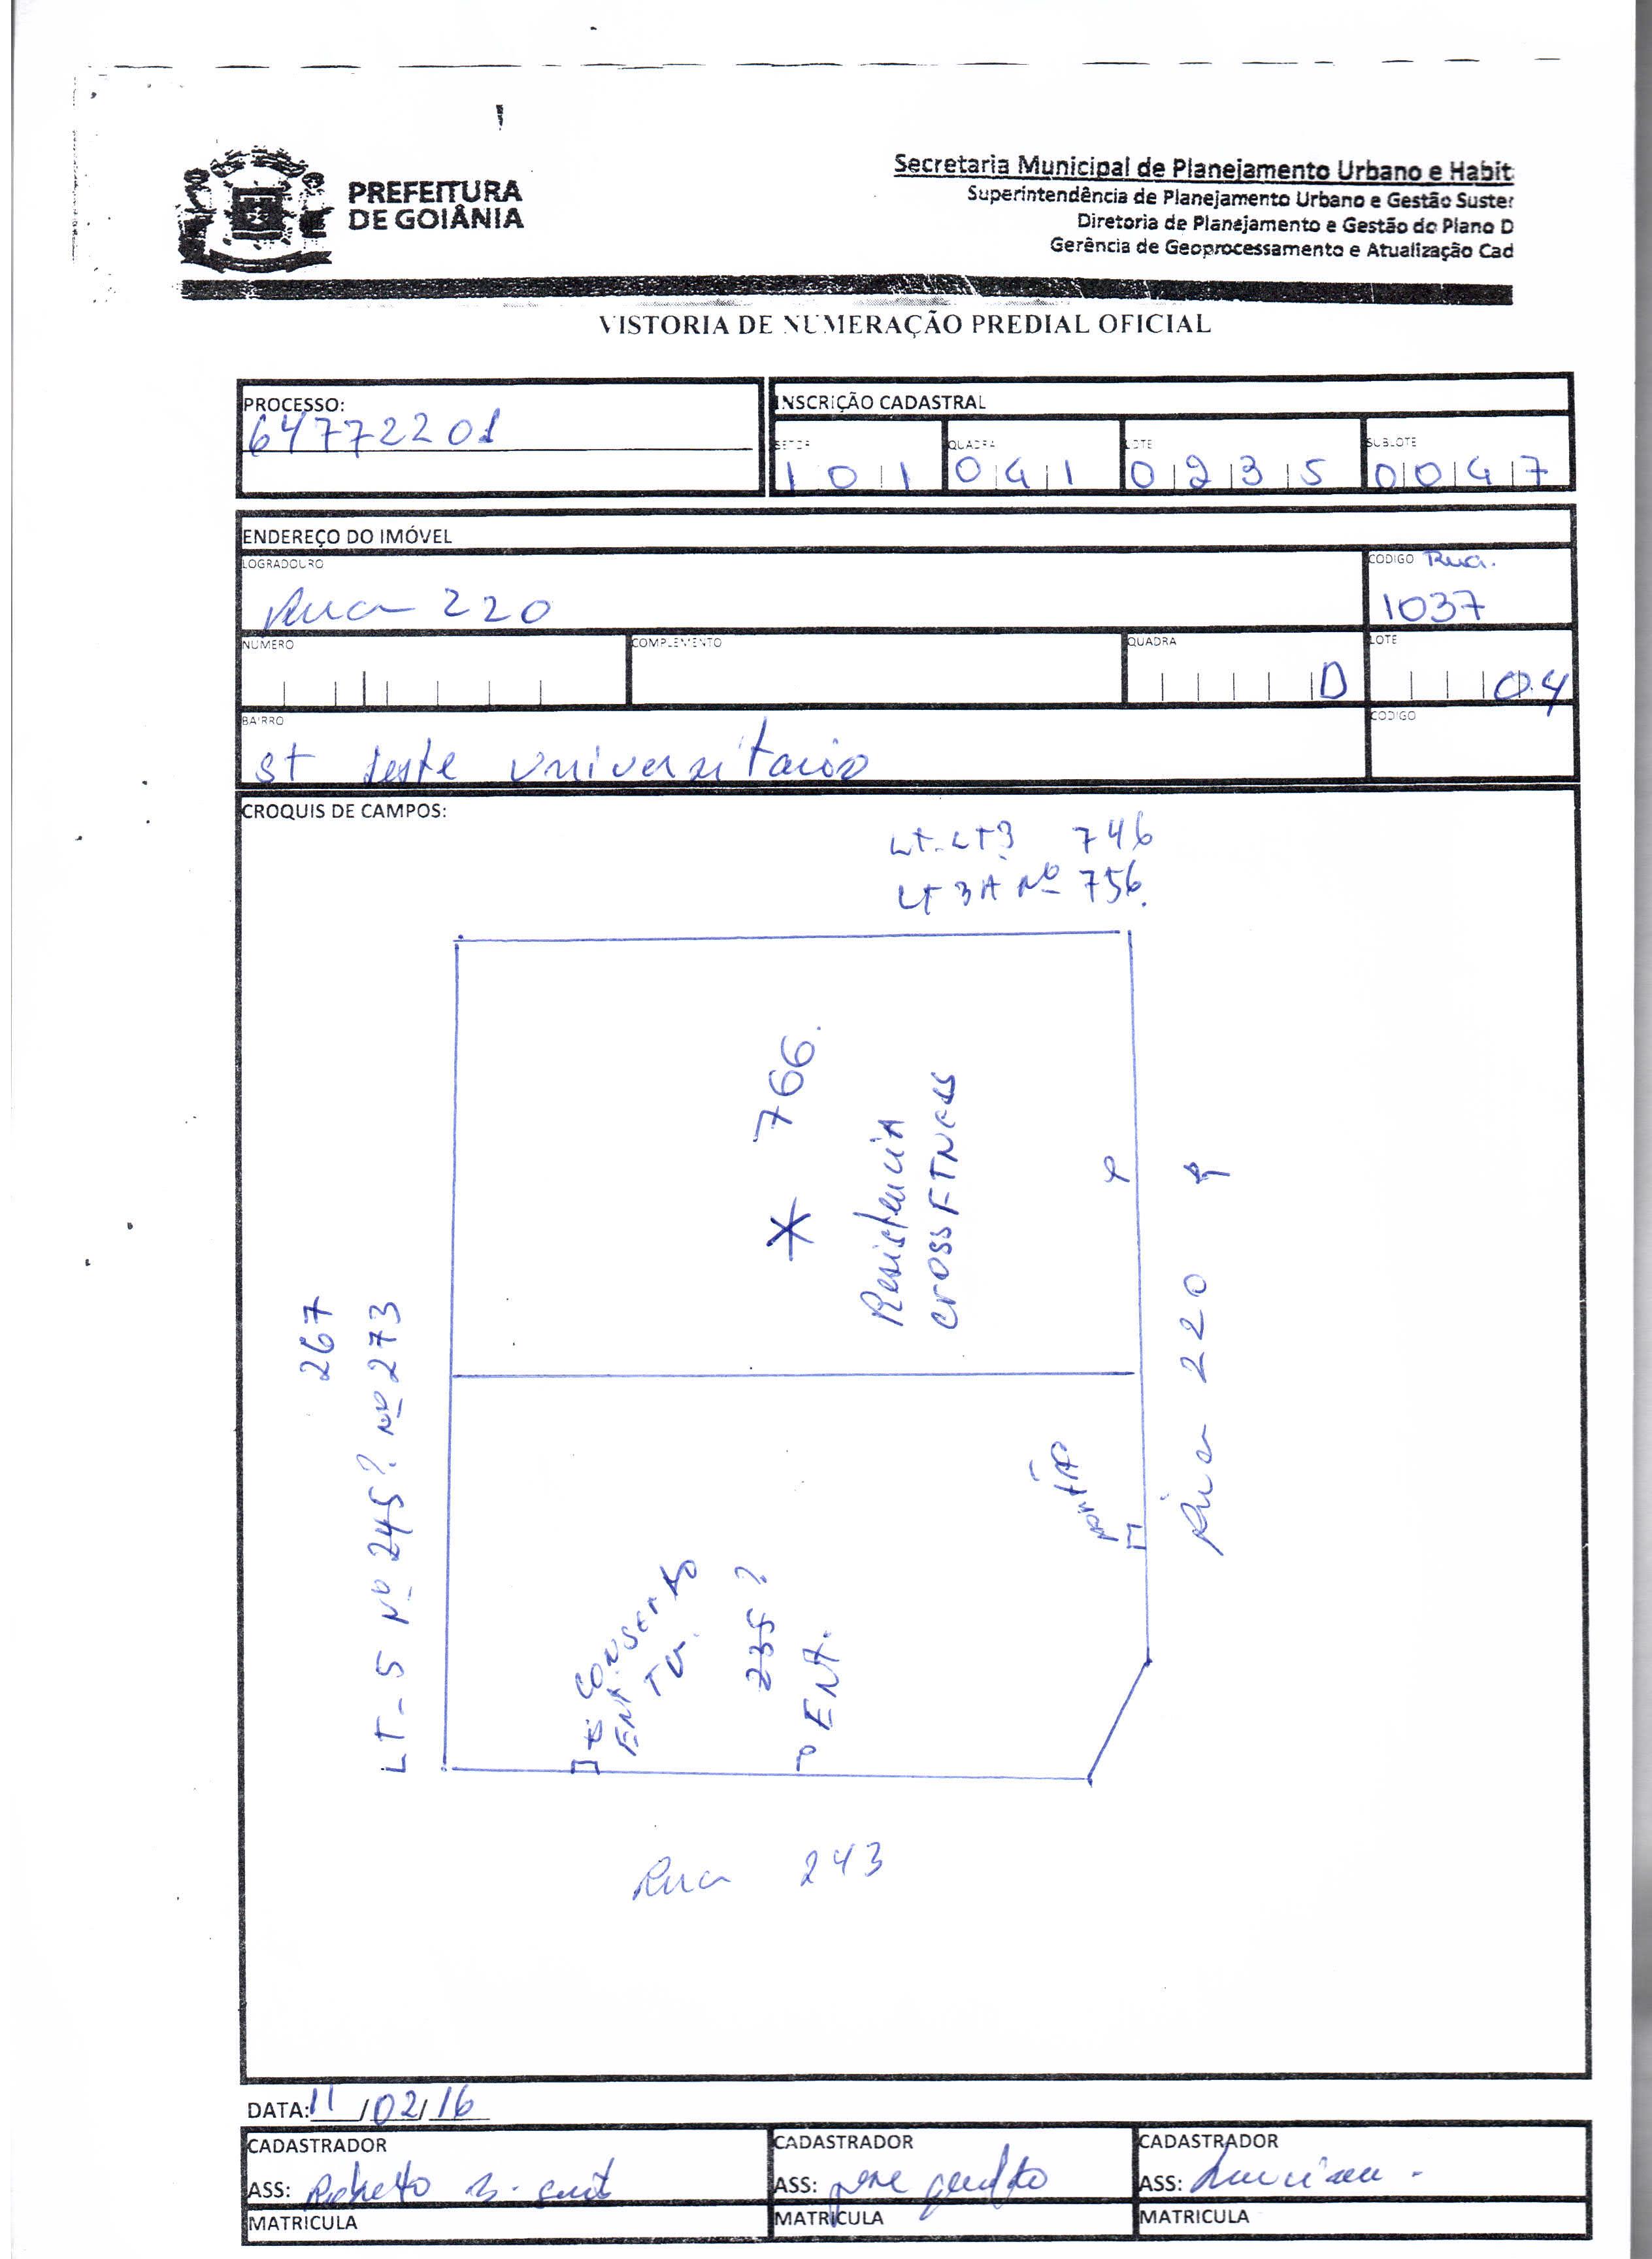 PREFEITURA
DE GOIÂNIA
Secretaria Municipal de Planejamento Urbano e Habit
Superintendência de Planejamento Urbano e Gestão Suster
Diretoria de Planejamento e Gestão do Plano D
Gerência de Geoprocessamento e Atualização Cad
VISTORIA DE NUMERAÇÃO PREDIAL OFICIAL
PROCESSO:
64772201
INSCRIÇÃO CADASTRAL
SETOR QUADRA LOTE SUBLOTE
101 041 0235 0047
ENDEREÇO DO IMÓVEL
LOGRADOURO
Rua 220
CODIGO Rua.
1037
NUMERO COMPLEMENTO QUADRA LOTE
D 04
BAIRRO CODIGO
st Leste Universitario
CROQUIS DE CAMPOS:
LT-LT3 746
LT 3A Nº 756.
* 766.
Resistencia
CROSSFTNESS
267
LT-5 Nº 245? Nº 273
Rua 220
portão
CONSERTO
ENT TV.
235?
ENT.
Rua 243
DATA: 11/02/16
CADASTRADOR CADASTRADOR CADASTRADOR
ASS: Roberto ASS: ASS:
MATRICULA MATRICULA MATRICULA